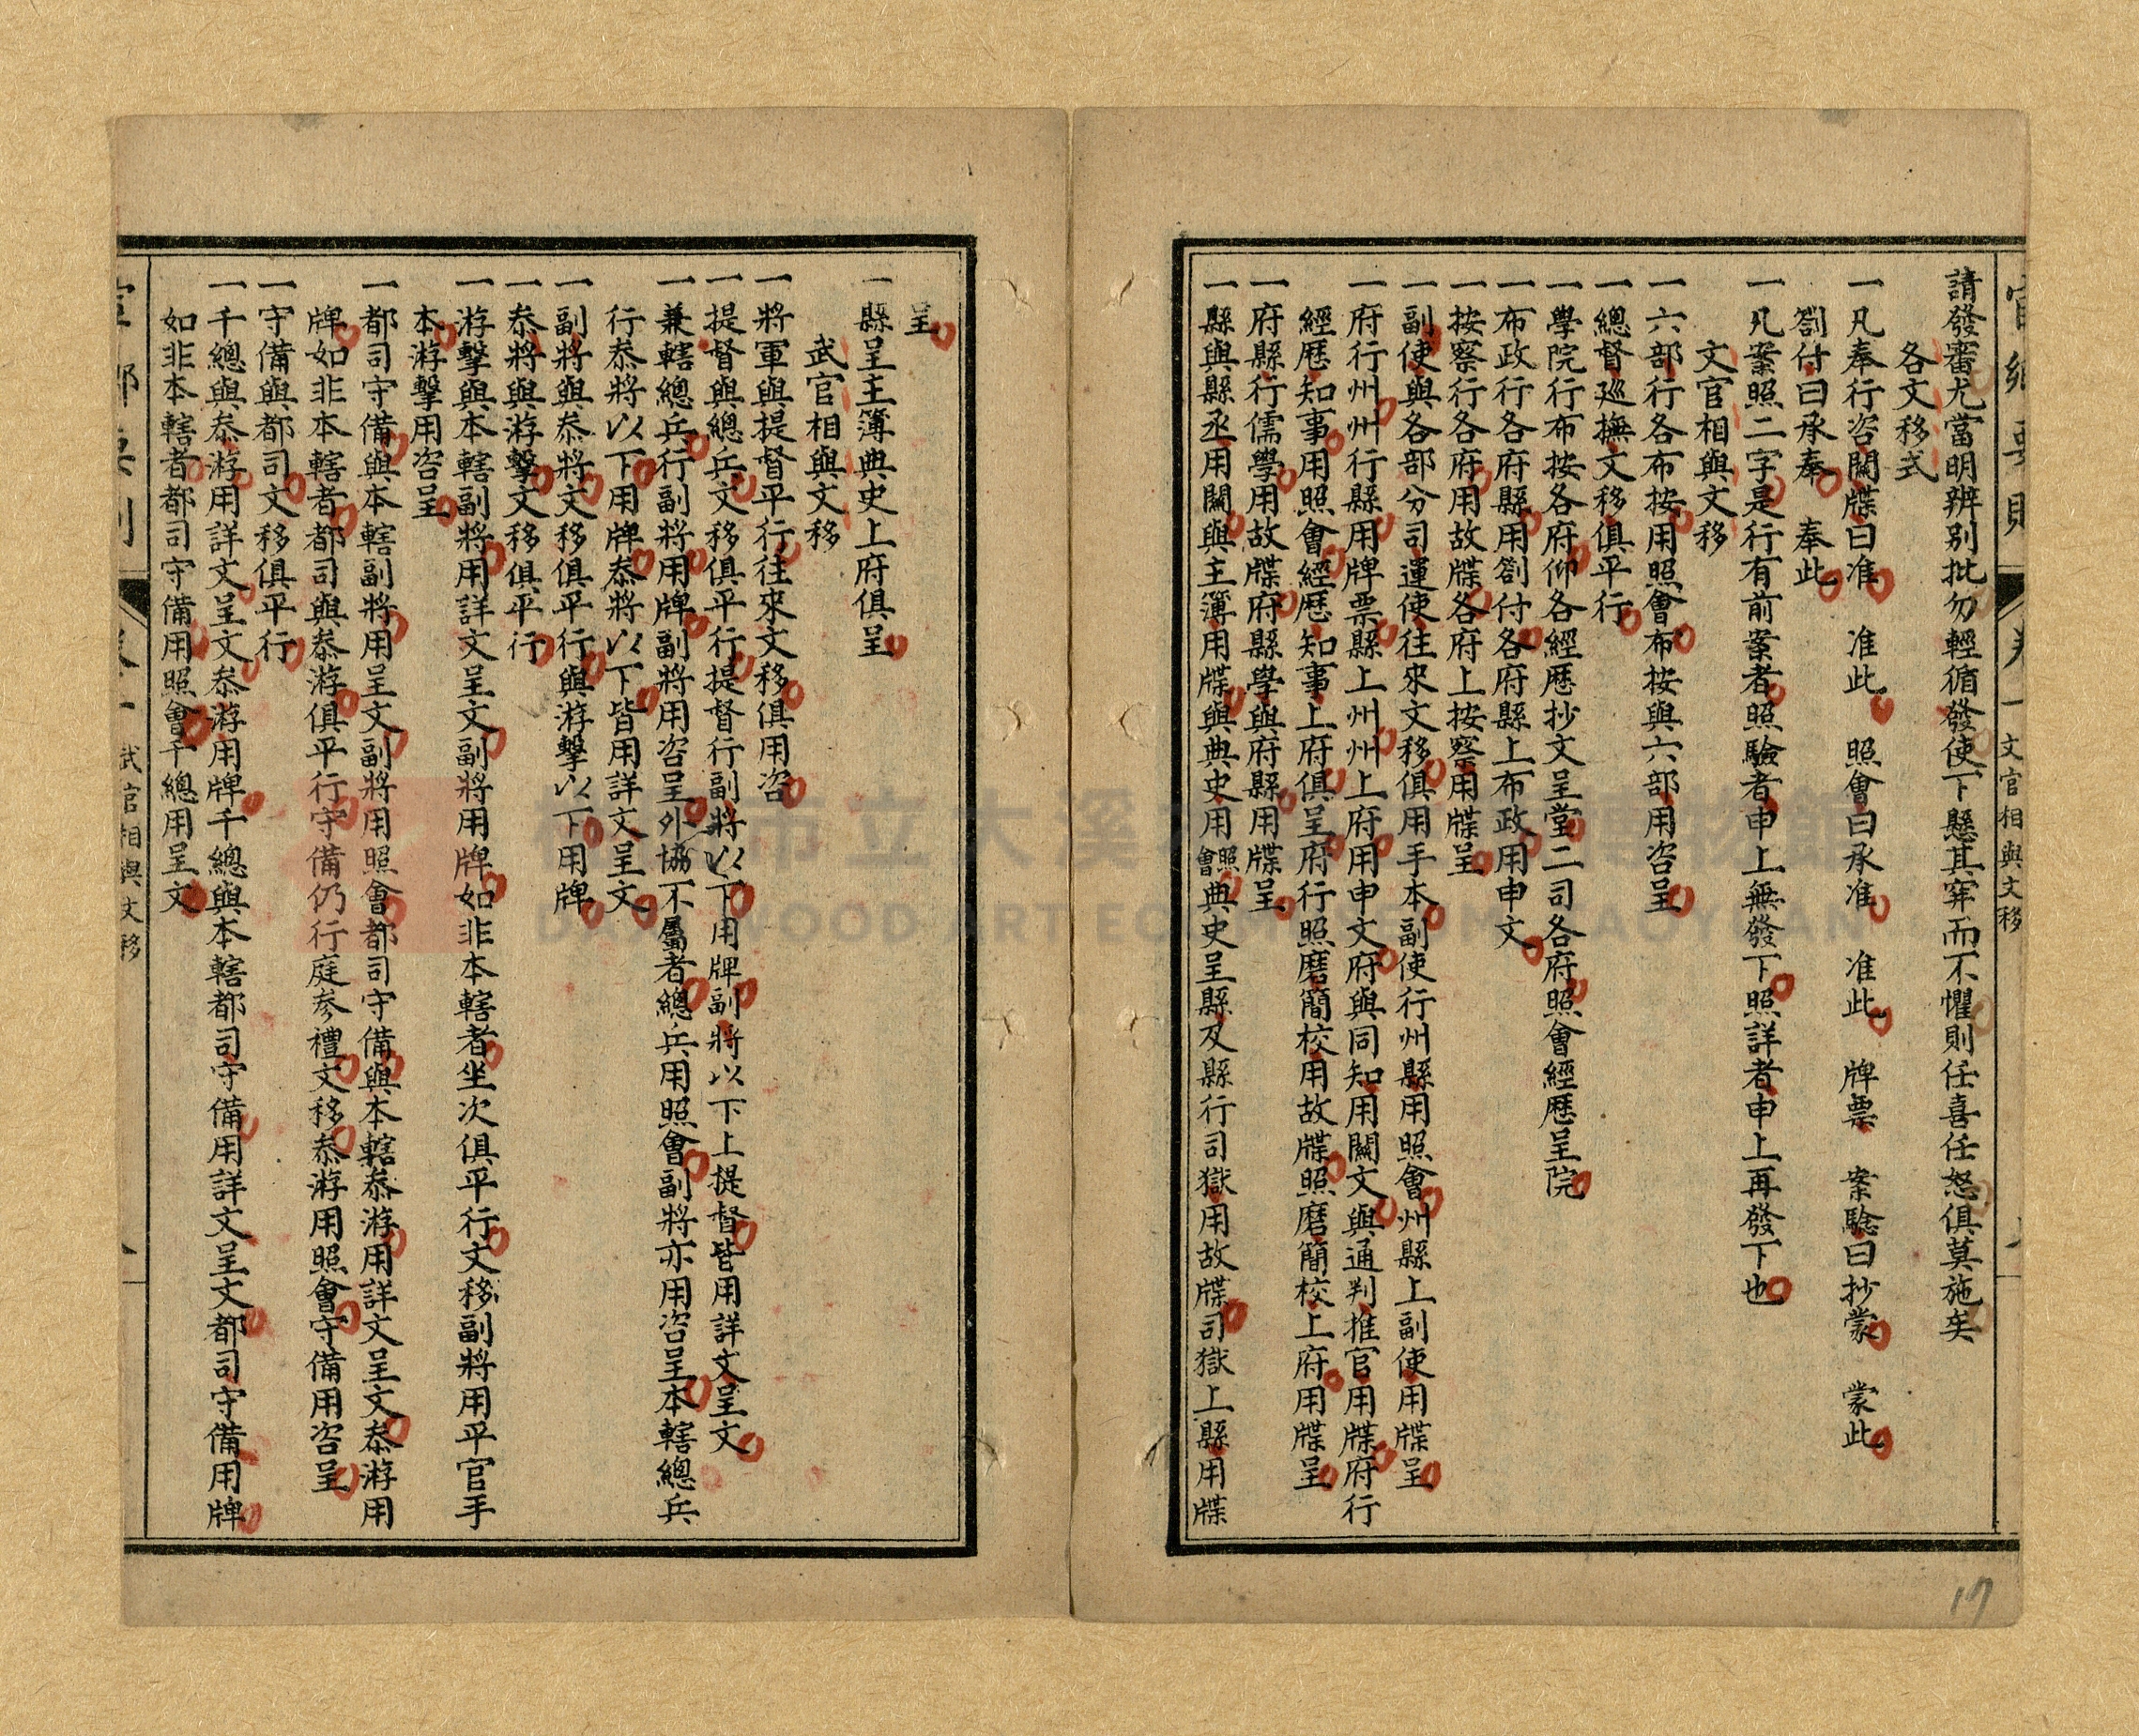 文官相與文移
請發審尤當明辨别批勿輕循發使下懸其窂而不懼則任喜任怒俱莫施矣
各文移式
一凡奉行咨關牒曰准　准此　照會曰承准　准此　牌票　案驗曰抄蒙　蒙此
劄付曰承奉　奉此
一凡案照二字是行有前案者照驗者申上無發下照詳者申上再發下也
文官相與文移
一六部行各布按用照會布按與六部用咨呈
一總督巡撫文移俱平行
一學院行布按各府仰各經歷抄文呈堂二司各府照會經歷呈院
一布政行各府縣用劄付各府縣上布政用申文
一按察行各府用故牒各府上按察用牒呈
一副使與各部分司運使往來文移俱用手本副使行州縣用照會州縣上副使用牒呈
一府行州州行縣用牌票縣上州州上府用申文府與同知用關文與通判推官用牒府行
經歷知事用照會經歷知事上府俱呈府行照磨簡校用故牒照磨簡校上府用牒呈
一府縣行儒學用故牒府縣學與府縣用牒呈
一縣與縣丞用關與主簿用牒與典史用照會典史呈縣及縣行司獄用故牒司獄上縣用牒
呈
一縣呈主簿典史上府俱呈
武官相與文移
一將軍與提督平行往來文移俱用咨
一提督與總兵文移俱平行提督行副將以下用牌副將以下上提督皆用詳文呈文
一兼轄總兵行副將用牌副將用咨呈外協不屬者總兵用照會副將亦用咨呈本轄總兵
行叅將以下用牌叅將以下皆用詳文呈文
一副將與叅將文移俱平行與游擊以下用牌
一叅將與游擊文移俱平行
一游擊與本轄副將用詳文呈文副將用牌如非本轄者坐次俱平行文移副將用平官手
本游擊用咨呈
一都司守備與本轄副將用呈文副將用照會都司守備與本轄叅游用詳文呈文叅游用
牌如非本轄者都司與叅游俱平行守備仍行庭參禮文移叅游用照會守備用咨呈
一守備與都司文移俱平行
一千總與叅游用詳文呈文叅游用牌千總與本轄都司守備用詳文呈文都司守備用牌
如非本轄者都司守備用照會千總用呈文
武官相與文移
17